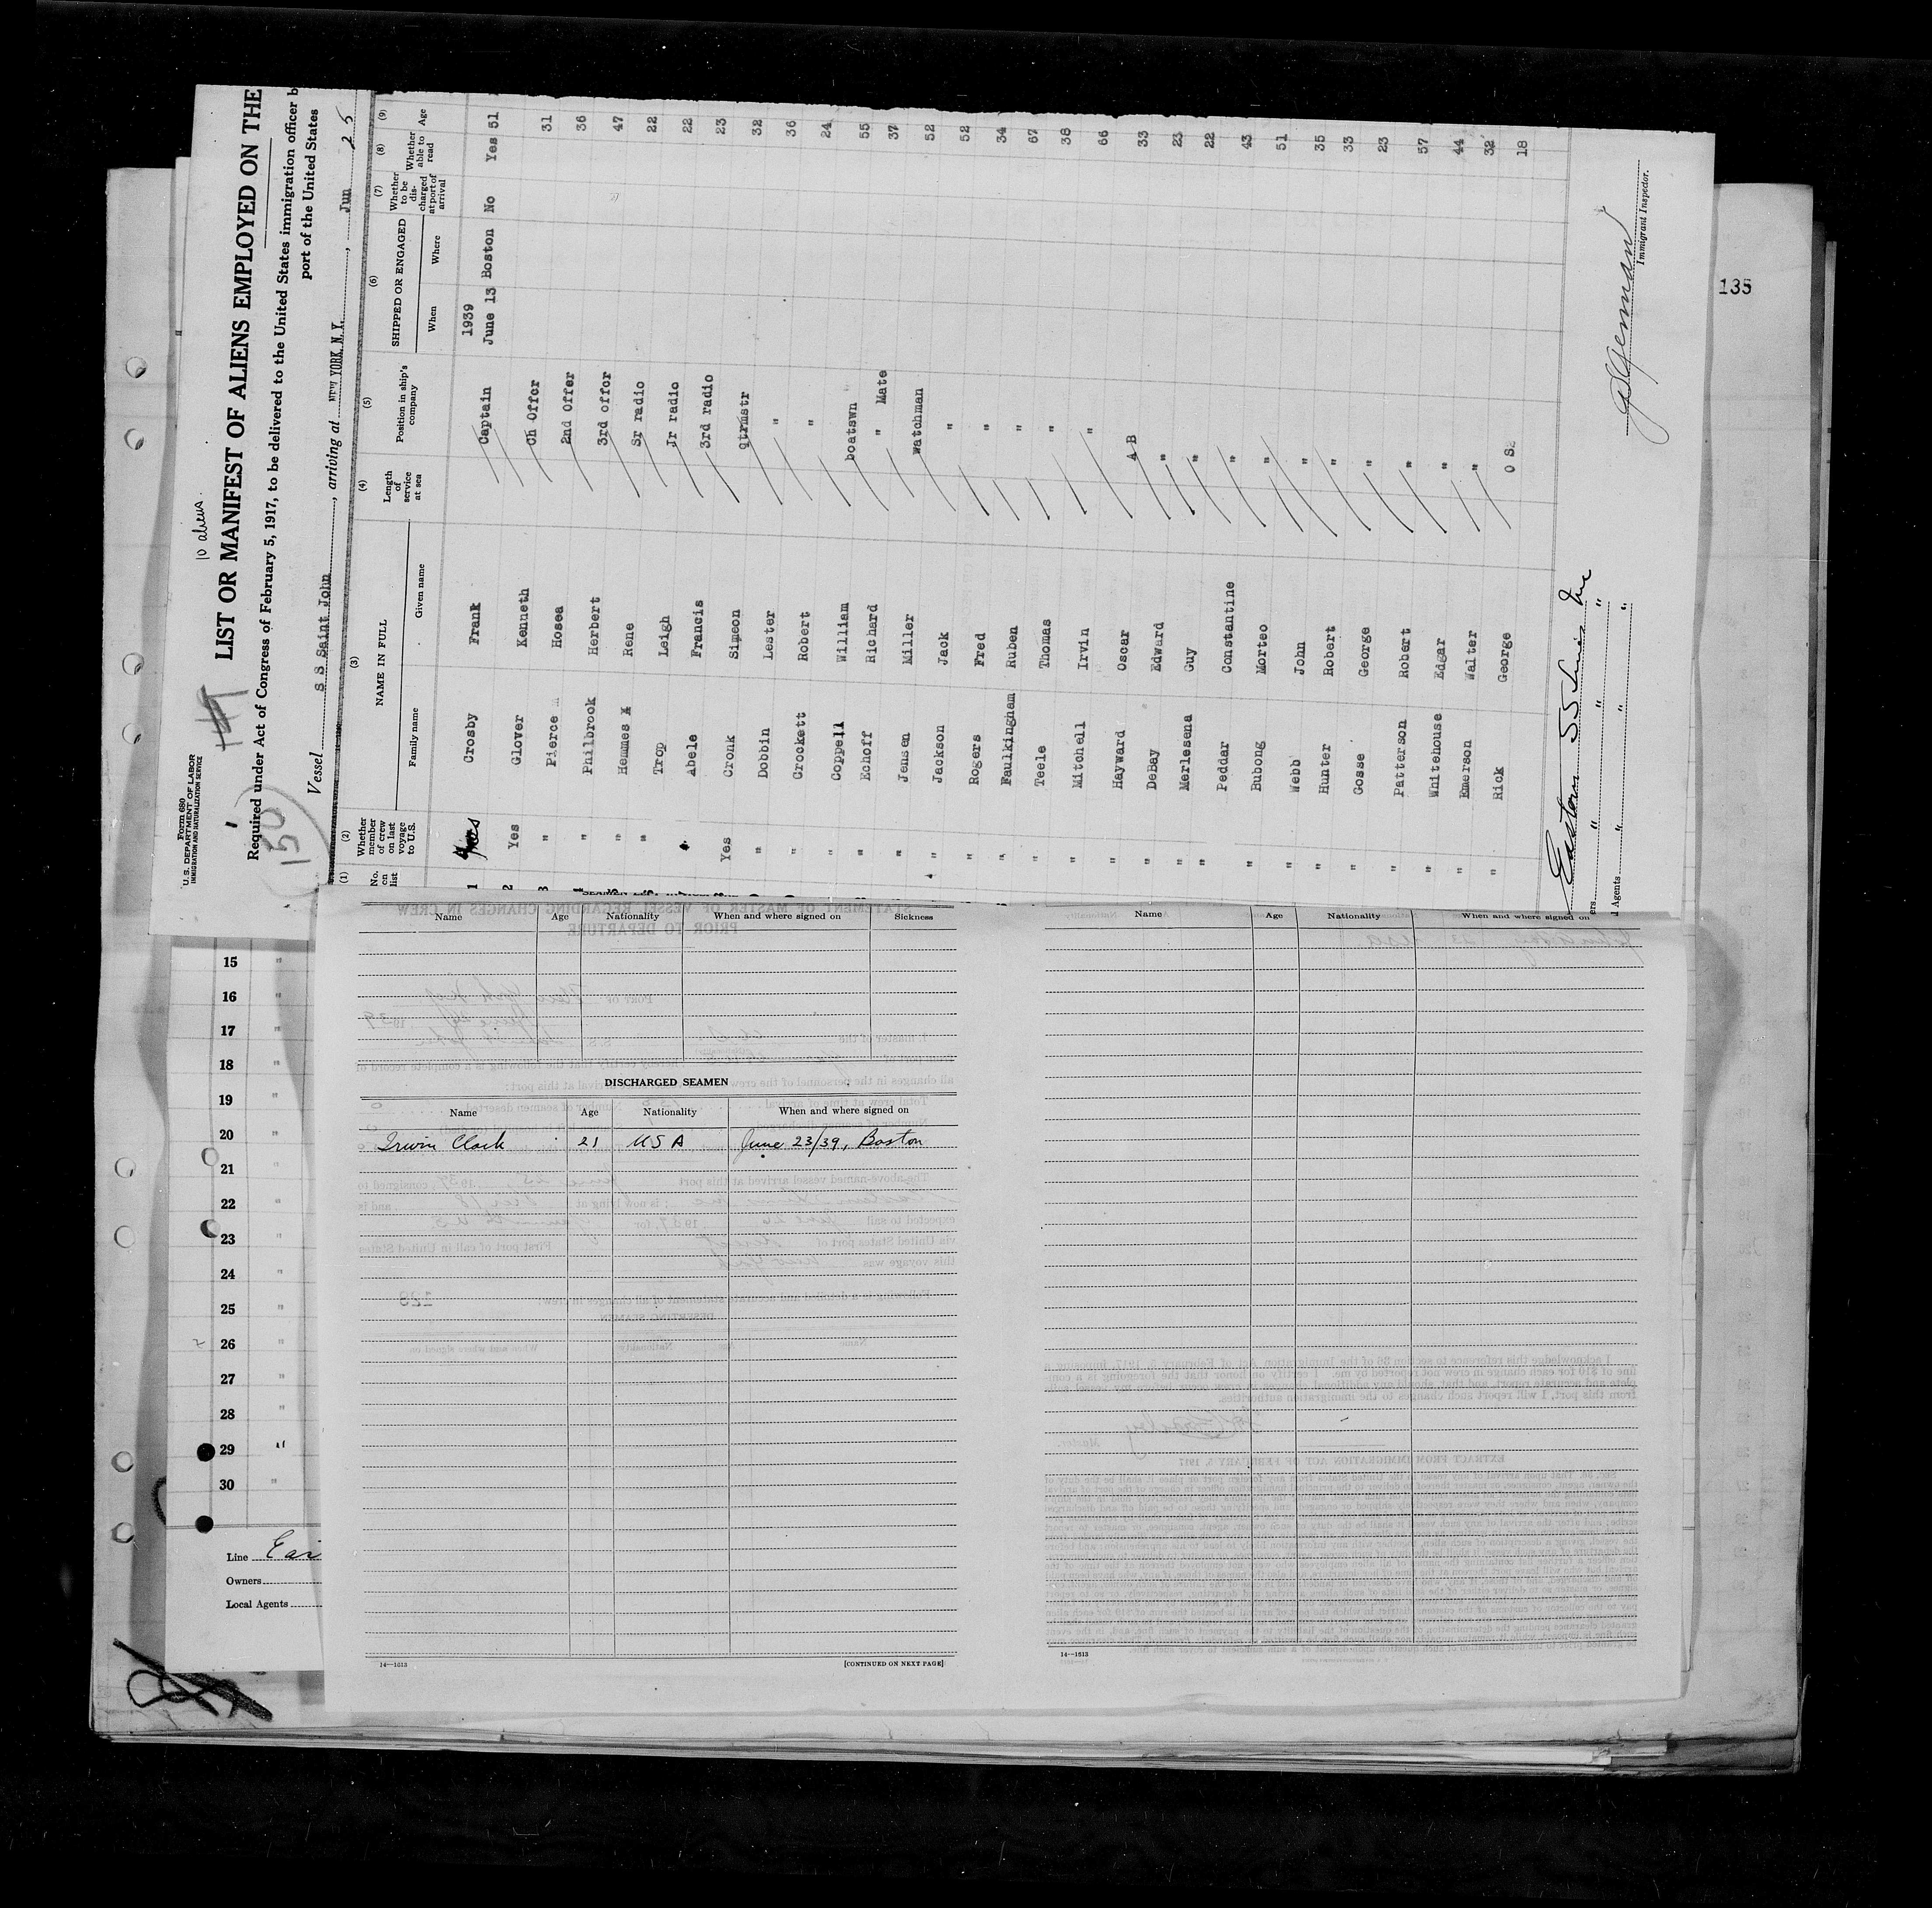 Form 680
U.S. DEPARTMENT OF LABOR
IMMIGRATION AND NATURALIZATION SERVICE
10 aliens.
149
150
LIST OR MANIFEST OF ALIENS EMPLOYED ON THE
Required under Act of Congress of February 5, 1917, to be delivered to the United States immigration officer b
port of the United States
Vessel S S Saint John, arriving at NEW YORK, N.Y., Jun 25
(1) (2) (3) (4) (5) (6) (7) (8) (9)
No. on list Whether member of crew on last voyage to U.S. NAME IN FULL Family name Given name Length of service at sea Position in ship's company SHIPPED OR ENGAGED When Where Whether to be discharged at port of arrival Whether able to read Age
1939
1 Yes Crosby Frank Captain June 13 Boston No Yes 51
2 Yes Glover Kenneth Ch Offcr 31
3 " Pierce Hosea 2nd Offcr 36
" Philbrook Herbert 3rd offcr 47
" Hemmes Rene Sr radio 22
" Trop Leigh Jr radio 22
Abele Francis 3rd radio 23
Yes Cronk Simeon qtrmstr 32
" Dobbin Lester " 36
" Crockett Robert " 24
" Coppell William boatswn 55
" Echoff Richard " Mate 37
" Jensen Miller watchman 52
" Jackson Jack " 52
" Rogers Fred " 34
" Faulkingham Ruben " 67
" Teele Thomas " 38
" Mitchell Irvin " 66
" Hayward Oscar A B 33
" DeBay Edward " 23
" Merlesena Guy " 22
" Peddar Constantine " 43
" Bubong Morteo " 51
" Webb John " 35
" Hunter Robert " 33
" Gosse George " 23
" Patterson Robert " 57
" Whitehouse Edgar " 44
" Emerson Walter " 32
" Rick George O S 18
Eastern SS Lines Inc
ers " " "
l Agents " " "
Immigrant Inspector.
135
15 "
16 "
17 "
18 "
19 "
20 "
21 "
22 "
23 "
24 "
25 "
26 "
27 "
28 "
29 "
30 "
Line
Owners
Local Agents
Name Age Nationality When and where signed on Sickness
DISCHARGED SEAMEN
Name Age Nationality When and where signed on
Irwin Clark 21 U S A June 23/39, Boston
14—1613 [CONTINUED ON NEXT PAGE]
Name Age Nationality When and where signed on
14—1613